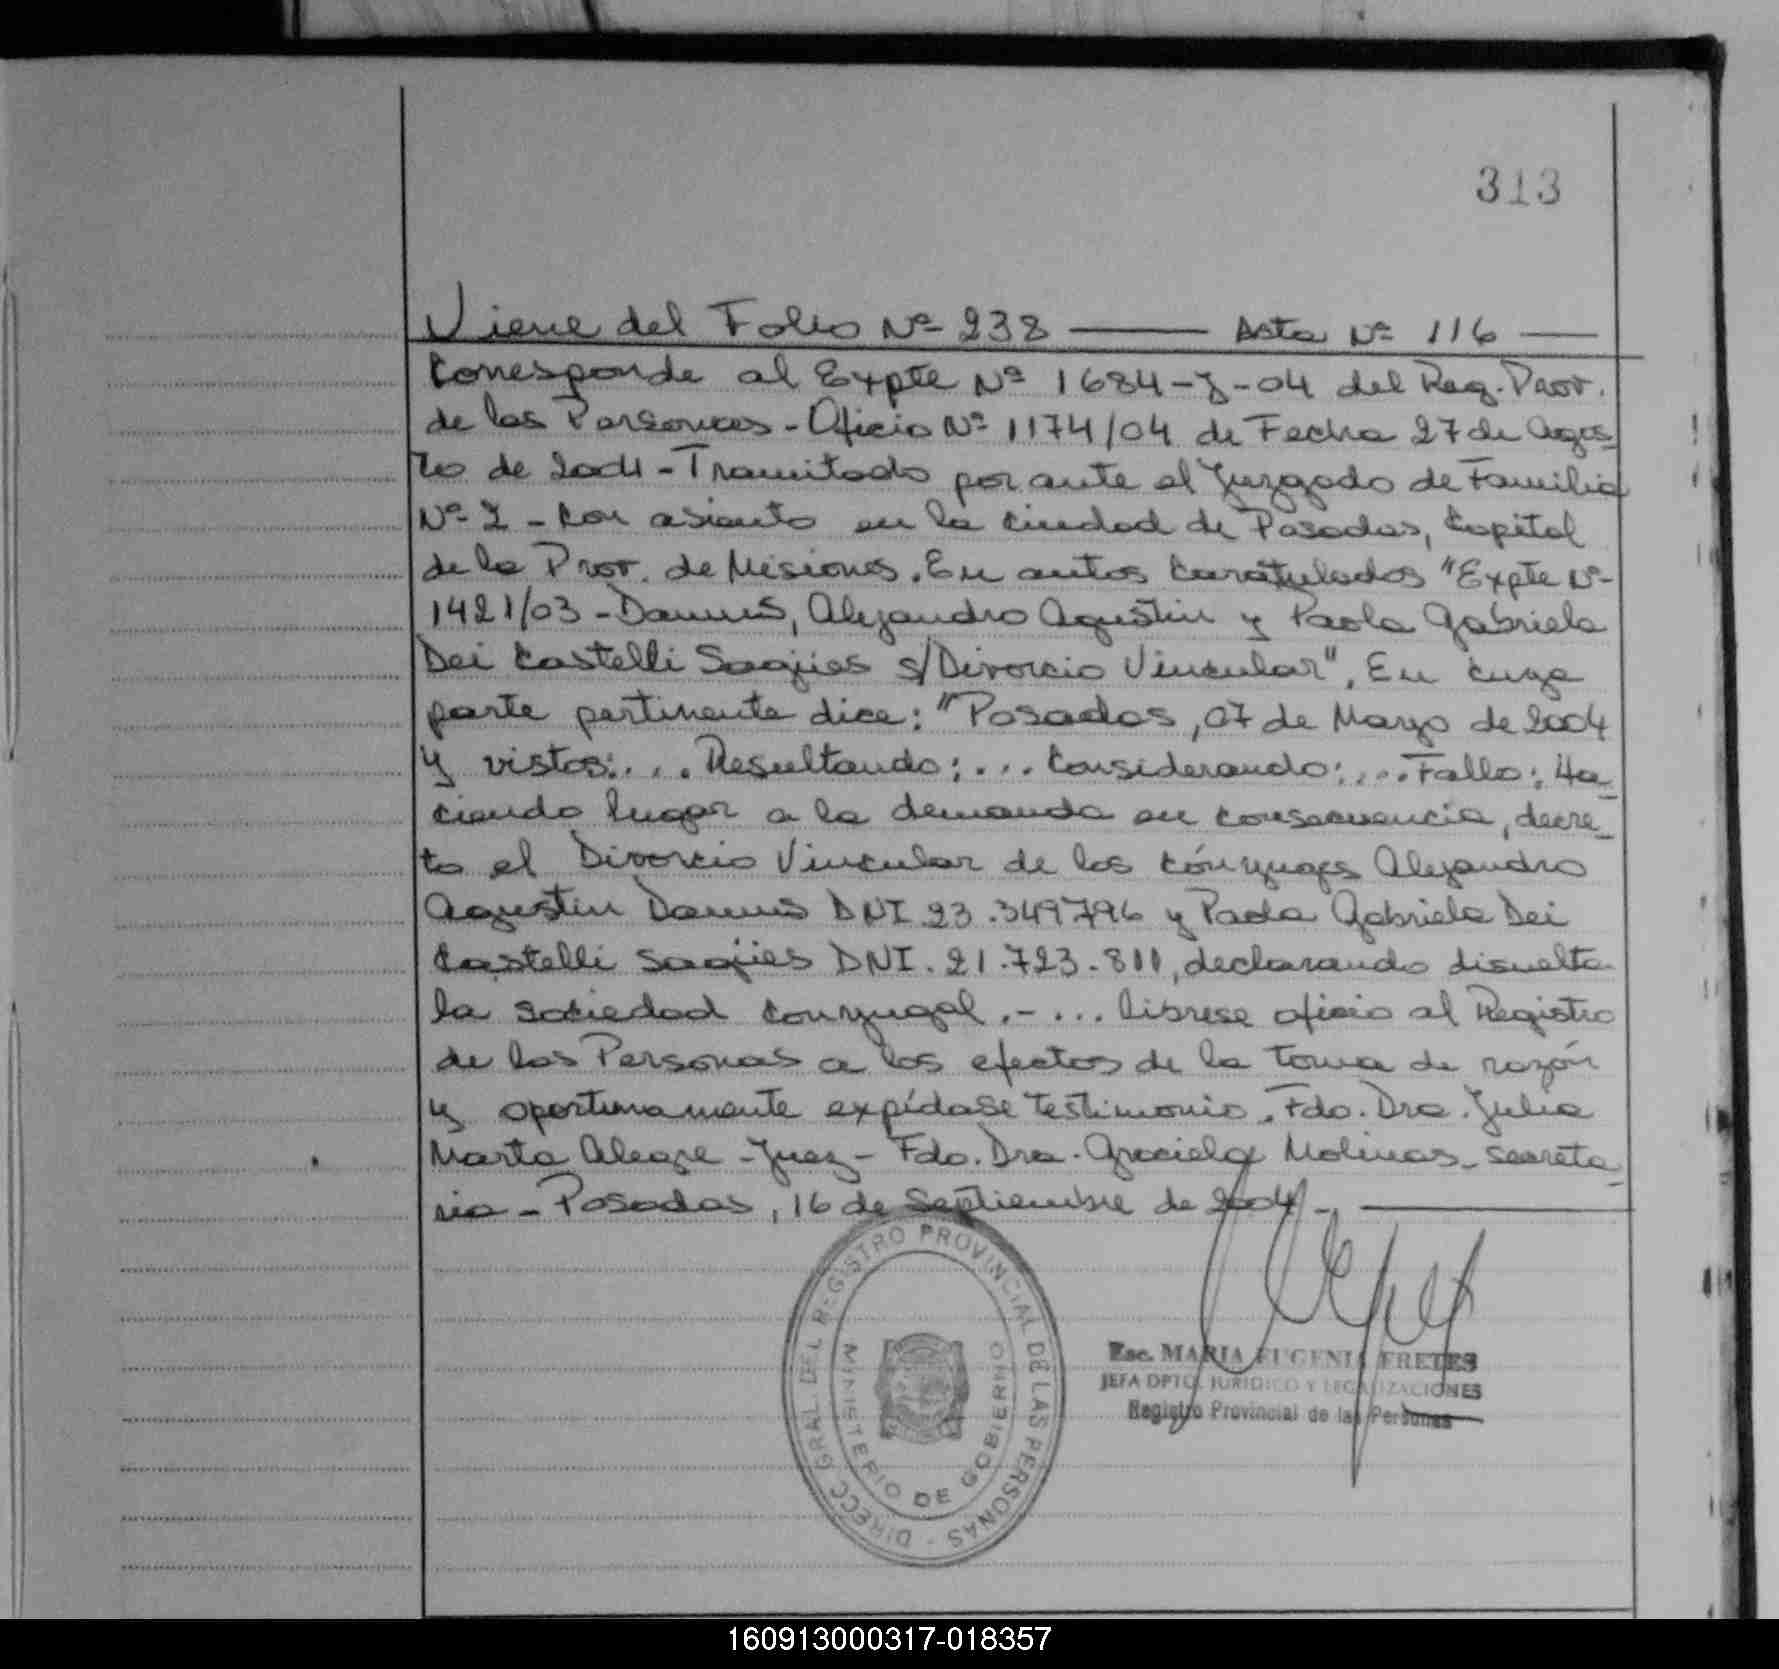 313
Viene del Folio Nº 238 ——— Acta Nº 116 ——
Corresponde al Expte Nº 1684-J-04 del Reg. Prov.
de las Personas - Oficio Nº 1174/04 de Fecha 27 de Agos-
to de 2004 - Tramitado por ante el Juzgado de Familia
Nº 2 - Con asiento en la ciudad de Posadas, Capital
de la Prov. de Misiones. En autos caratulados "Expte Nº
1421/03 - Alejandro Agustin y Paola Gabriela
Dei Castelli Sagües s/Divorcio Vincular", En cuya
parte pertinente dice: "Posadas, 07 de Mayo de 2004
y vistos:... Resultando:... Considerando:... Fallo: Ha-
ciendo lugar a la demanda en consecuencia, decre-
to el Divorcio Vincular de los cónyuges Alejandro
Agustin DNI 23.349796 y Paola Gabriela Dei
Castelli Sagües DNI. 21.723.811, declarando disuelta
la sociedad conyugal.-... librese oficio al Registro
de las Personas a los efectos de la toma de razón
y oportunamente expídase testimonio. Fdo. Dra. Julia
Marta Alegre - Juez - Fdo. Dra. Graciela Molinas - secreta-
ria - Posadas, 16 de Septiembre de 2004 - ———
DIRECC. GRAL. DEL REGISTRO PROVINCIAL DE LAS PERSONAS -
MINISTERIO DE GOBIERNO
Esc. MARIA EUGENIA FRETES
JEFA DPTO. JURIDICO Y LEGALIZACIONES
Registro Provincial de las Personas
160913000317-018357